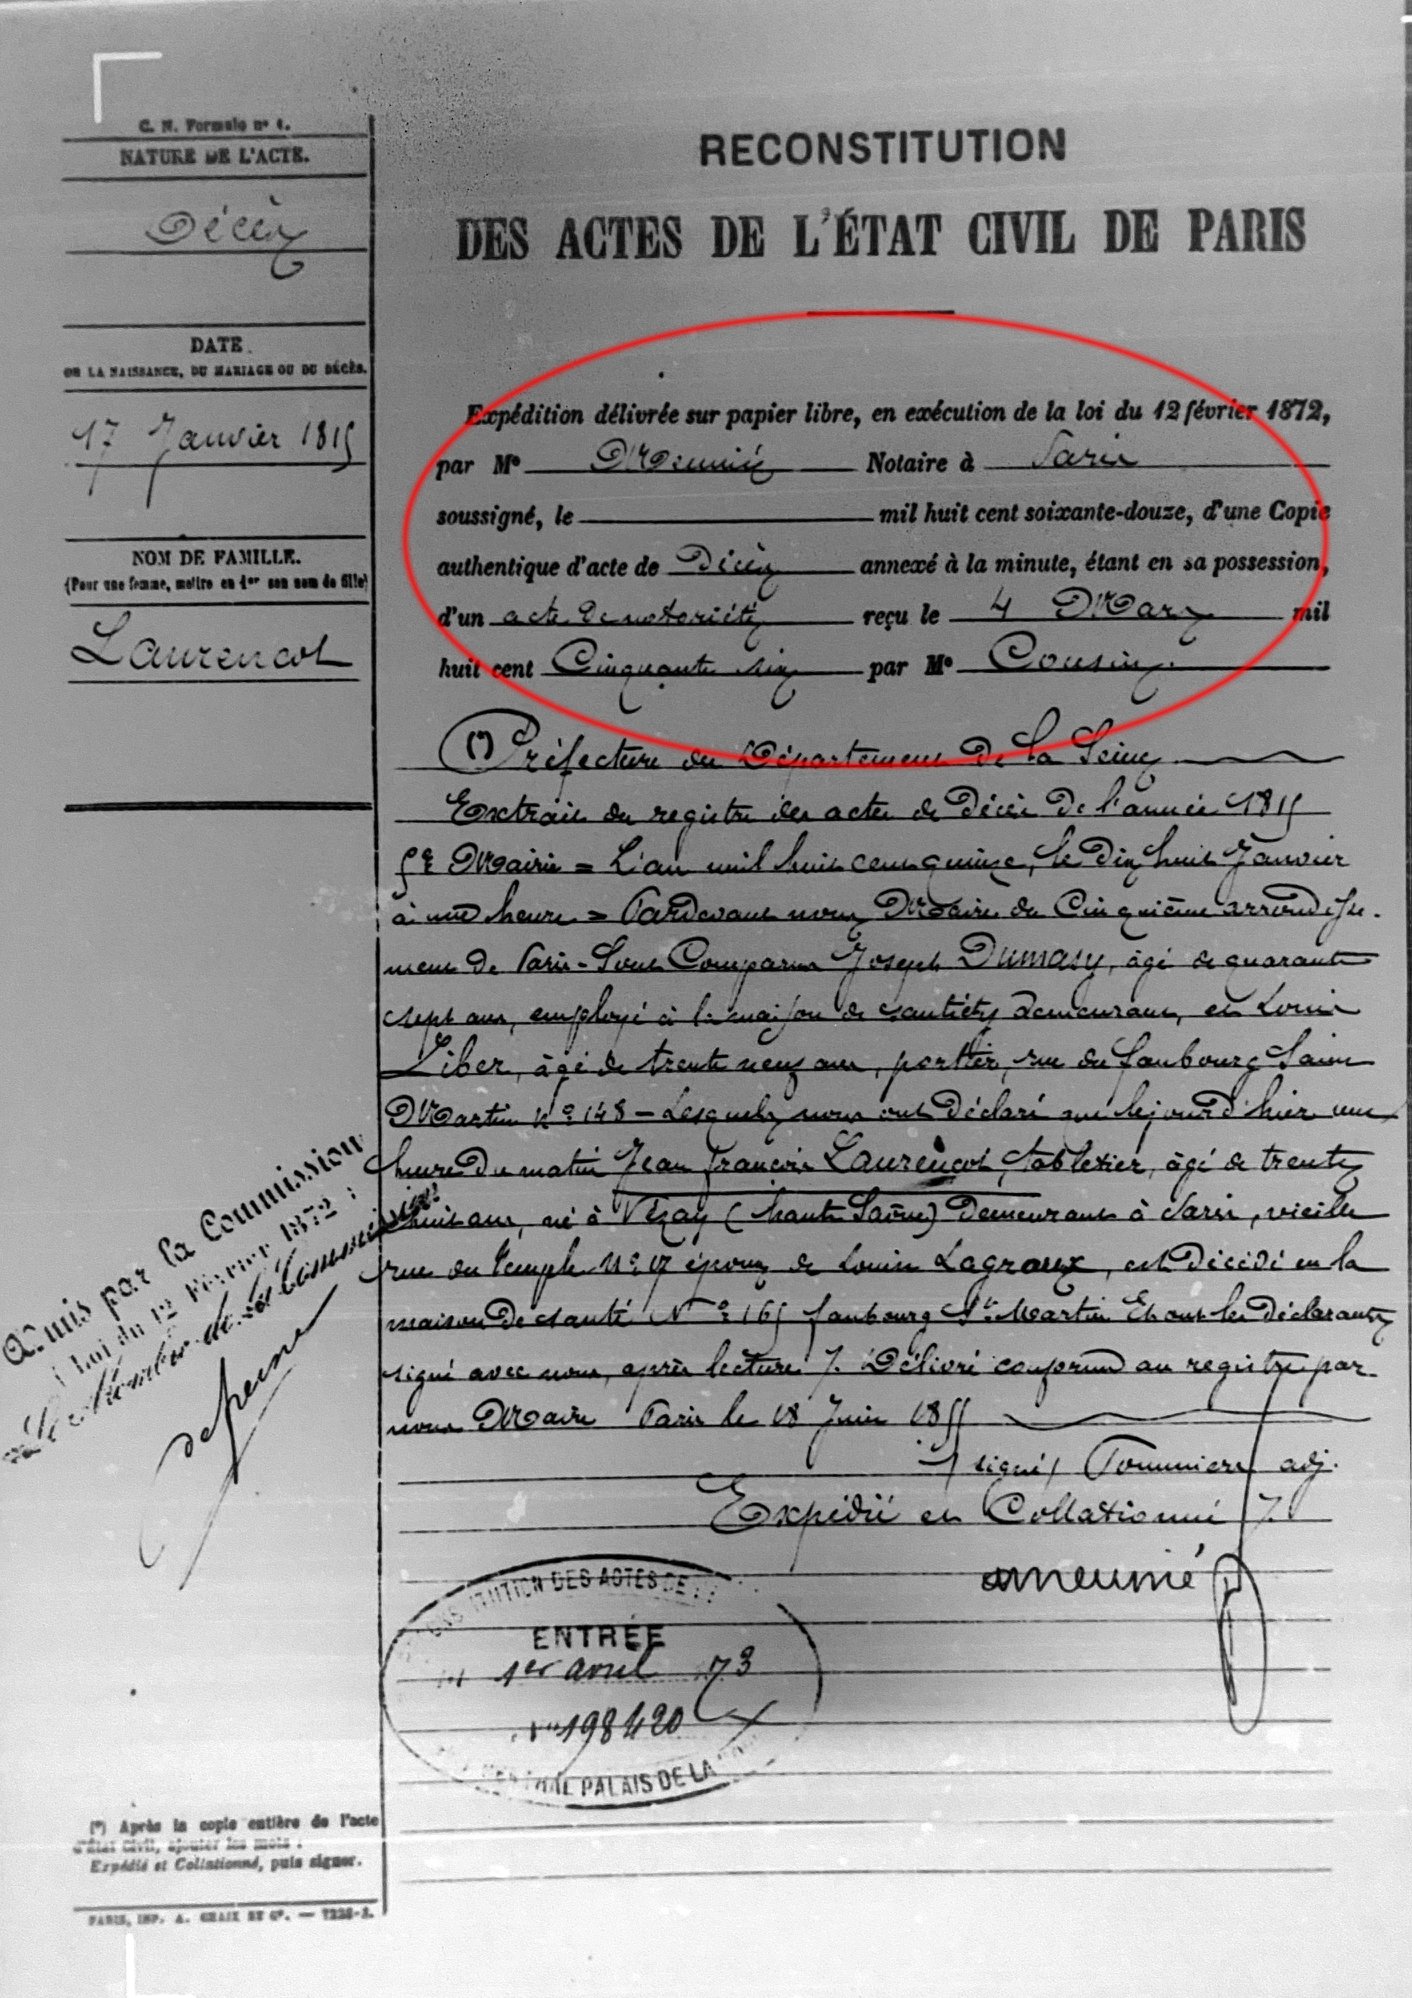 C. N. Formule nº 1.
NATURE DE L'ACTE.
Décès
DATE
DE LA NAISSANCE, DU MARIAGE OU DU DÉCÈS.
17 Janvier 1815
NOM DE FAMILLE.
(Pour une femme, mettre en 1er son nom de fille)
Laurencot
RECONSTITUTION
DES ACTES DE L'ÉTAT CIVIL DE PARIS
Expédition délivrée sur papier libre, en exécution de la loi du 12 février 1872,
par Me Meunié Notaire à Paris
soussigné, le mil huit cent soixante-douze, d'une Copie
authentique d'acte de Décès annexé à la minute, étant en sa possession,
d'un acte de notoriété reçu le 4 Mars mil
huit cent Cinquante six par Me Cousin
(*) Préfecture du Département de la Seine
Extrait du registre des actes de Décès de l'année 1815
5e Mairie = L'an mil huit cent quinze, le dix huit Janvier
à une heure = Pardevant nous Maire du Cinquième arrondisse-
ment de Paris - Sont Comparus Joseph Dumasy, âgé de quarante
sept ans, employé à la maison de santé, y demeurant, et Louis
Liber, âgé de trente neuf ans, portier, rue du faubourg Saint
Martin Nº 148 - Lesquels nous ont Déclaré que le jour d'hier une
heure du matin Jean françois Laurencot, tabletier, âgé de trente
huit ans, né à Vezay (haute Saône) Demeurant à Paris, vieille
rue du temple Nº 17 époux de Louise Lagroux, est Décédé en la
maison de santé Nº 165 faubourg St Martin Et ont les Déclarants
signé avec nous, après lecture /. Délivré conforme au registre par
nous Maire Paris le 18 Juin 1855
/signé/ Pommier adj.
Expédié et Collationné /.
Meunié
Admis par la Commission
Loi du 12 Février 1872
Le Membre de la Commission
RECONSTITUTION DES ACTES DE
ENTRÉE
1er avril 73
Nº 198420
CENTRAL PALAIS DE LA
(*) Après la copie entière de l'acte
d'État Civil, ajouter les mots :
Expédié et Collationné, puis signer.
PARIS, IMP. A. CHAIX ET Cº. — 7226-2.